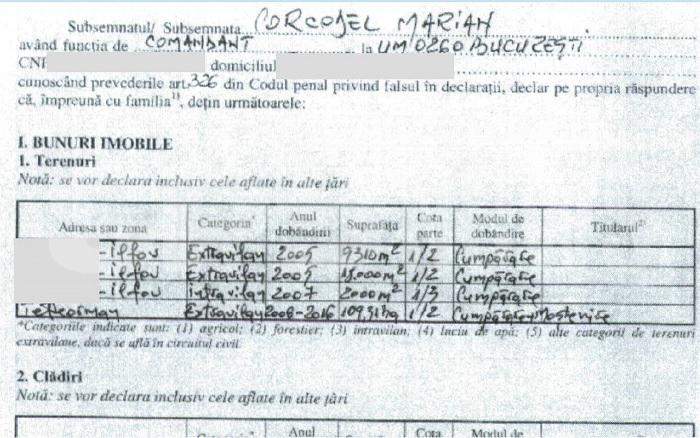 Subsemnatul/ Subsemnata CORCOJEL MARIAN
având funcția de COMANDANT la UM 0260 BUCUREȘTI.
CNP domiciliul
cunoscând prevederile art. 326 din Codul penal privind falsul în declarații, declar pe propria răspundere
că, împreună cu familia¹⁾, dețin următoarele:
I. BUNURI IMOBILE
1. Terenuri
Notă: se vor declara inclusiv cele aflate în alte țări
Adresa sau zona Categoria* Anul dobândirii Suprafața Cota parte Modul de dobândire Titularul²⁾
-ilfov Extravilan 2005 9310m² 1/2 Cumpărare
-ilfov Extravilan 2005 m² 1/2 Cumpărare
-ilfov intravilan 2007 2000m² 1/3 Cumpărare
Teleorman Extravilan 2006-2016 ha 1/2 Cumpărare/Moștenire
*Categoriile indicate sunt: (1) agricol; (2) forestier; (3) intravilan; (4) luciu de apă; (5) alte categorii de terenuri
extravilane, dacă se află în circuitul civil.
2. Clădiri
Notă: se vor declara inclusiv cele aflate în alte țări
Categoria* Anul Cota Modul de